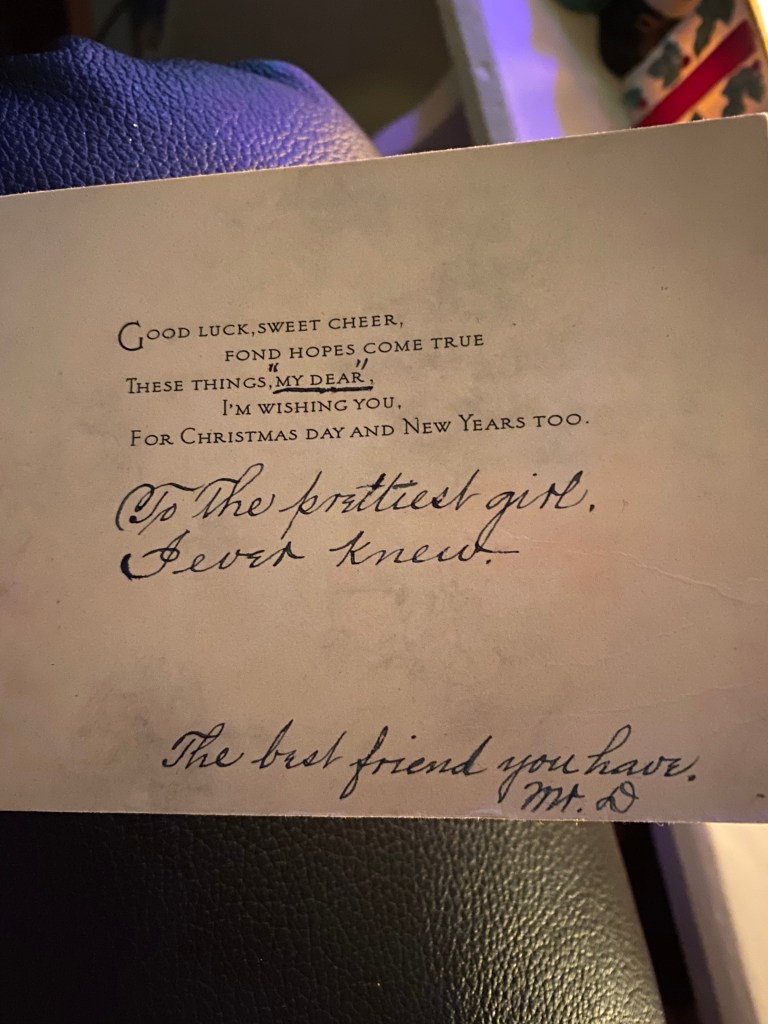 GOOD LUCK, SWEET CHEER,
FOND HOPES COME TRUE
THESE THINGS, "MY DEAR",
I'M WISHING YOU,
FOR CHRISTMAS DAY AND NEW YEARS TOO.
To The prettiest girl.
I ever knew.—
The best friend you have.
Mr. D